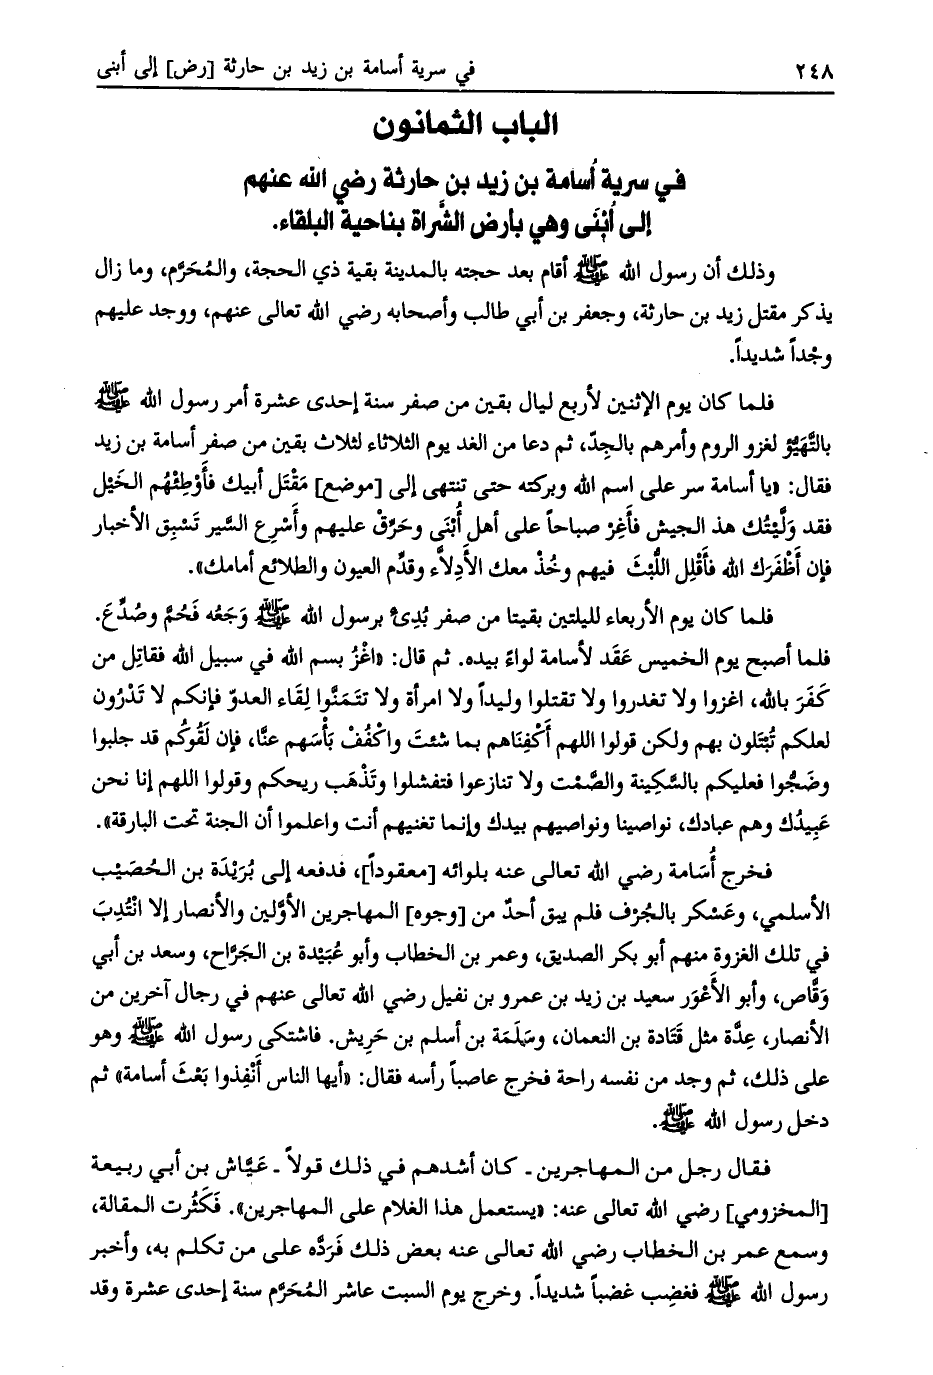 ٢٤٨ في سرية أسامة بن زيد بن حارثة [رض] إلى أبنى
الباب الثمانون
في سرية أُسامة بن زيد بن حارثة رضي الله عنهم
إلى أُبْنَى وهي بأرض الشَّراة بناحية البلقاء.
وذلك أن رسول الله ﷺ أقام بعد حجته بالمدينة بقية ذي الحجة، والمُحَرَّم، وما زال
يذكر مقتل زيد بن حارثة، وجعفر بن أبي طالب وأصحابه رضي الله تعالى عنهم، ووجد عليهم
وجْداً شديداً.
فلما كان يوم الإثنين لأربع ليال بقين من صفر سنة إحدى عشرة أمر رسول الله ﷺ
بالتَّهَيُّؤ لغزو الروم وأمرهم بالجِدّ، ثم دعا من الغد يوم الثلاثاء لثلاث بقين من صفر أسامة بن زيد
فقال: «يا أسامة سر على اسم الله وبركته حتى تنتهى إلى [موضع] مَقْتَل أبيك فأَوْطِئْهُم الخَيْل
فقد وَلَّيْتُك هذ الجيش فأَغِرْ صباحاً على أهل أُبْنَى وحَرِّقْ عليهم وأَسْرِع السَّير تَسْبِق الأخبار
فإن أَظْفَرَك الله فأَقْلِل اللُّبْثَ فيهم وخُذْ معك الأَدِلاَّء وقدِّم العيون والطلائع أمامك».
فلما كان يوم الأربعاء لليلتين بقيتا من صفر بُدِئ برسول الله ﷺ وَجَعُه فَحُمَّ وصُدِّعَ.
فلما أصبح يوم الخميس عَقَد لأسامة لواءً بيده. ثم قال: «اغْزُ بسم الله في سبيل الله فقاتِل من
كَفَرَ بالله، اغزوا ولا تغدروا ولا تقتلوا وليداً ولا امرأة ولا تتَمَنَّوا لِقَاء العدوّ فإنكم لا تَدْرُون
لعلكم تُبْتَلون بهم ولكن قولوا اللهم أَكْفِنَاهم بما شئتَ واكْفُفْ بَأْسَهم عنَّا، فإن لَقُوكُم قد جلبوا
وضَجُّوا فعليكم بالسَّكِينة والصَّمْت ولا تنازعوا فتفشلوا وتَذْهَب ريحكم وقولوا اللهم إنا نحن
عَبِيدُك وهم عبادك، نواصينا ونواصيهم بيدك وإنما تغنيهم أنت واعلموا أن الجنة تحت البارقة».
فخرج أُسَامة رضي الله تعالى عنه بلوائه [معقوداً]، فدفعه إلى بُرَيْدَة بن الحُصَيْب
الأسلمي، وعَسْكر بالجُرْف فلم يبق أحدٌ من [وجوه] المهاجرين الأوَّلين والأنصار إلا انْتُدِبَ
في تلك الغزوة منهم أبو بكر الصديق، وعمر بن الخطاب وأبو عُبَيْدة بن الجَرَّاح، وسعد بن أبي
وَقَّاص، وأبو الأَعْوَر سعيد بن زيد بن عمرو بن نفيل رضي الله تعالى عنهم في رجال آخرين من
الأنصار، عِدَّة مثل قَتَادة بن النعمان، وسَلَمَة بن أسلم بن حَرِيش. فاشتكى رسول الله ﷺ وهو
على ذلك، ثم وجد من نفسه راحة فخرج عاصباً رأسه فقال: «أيها الناس أَنْفِذوا بَعْثَ أسامة» ثم
دخل رسول الله ﷺ.
فقال رجل من المهاجرين ـ كان أشدهم في ذلك قولاً ـ عَيَّاش بن أبي ربيعة
[المخزومي] رضي الله تعالى عنه: «يستعمل هذا الغلام على المهاجرين». فَكَثُرت المقالة،
وسمع عمر بن الخطاب رضي الله تعالى عنه بعض ذلك فَرَدَّه على من تكلم به، وأخبر
رسول الله ﷺ فغضِب غضباً شديداً. وخرج يوم السبت عاشر المُحَرَّم سنة إحدى عشرة وقد